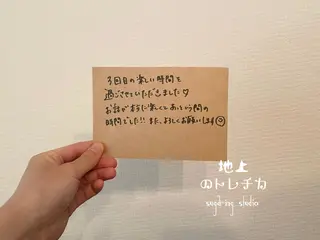 3回目の楽しい時間を
過ごさせていただきました♡
お話が本当に楽しくてあっという間の
時間でした!! また、よろしくお願いします☺
地上
のトレチカ